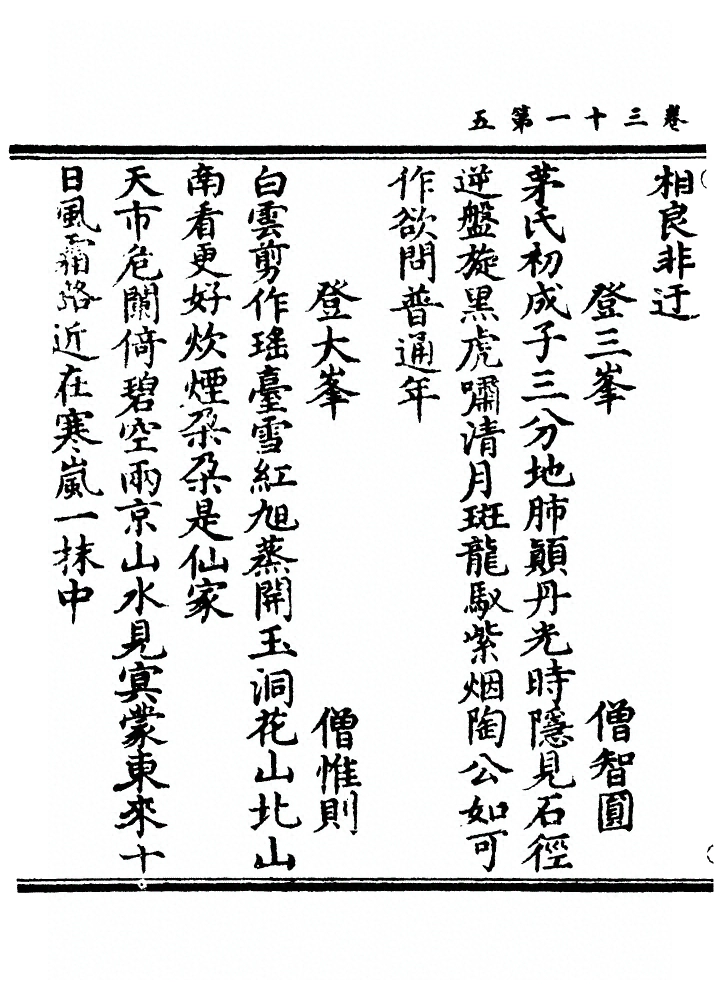 卷三十一第五
相良非迂
登三峯 僧智圓
茅氏初成子三分地肺顚丹光時隱見石徑
逆盤旋黑虎嘯清月斑龍馭紫烟陶公如可
作欲問普通年
登大峯 僧惟則
白雲剪作瑤臺雪紅旭蒸開玉洞花山北山
南看更好炊煙朶朶是仙家
天市危闌倚碧空兩京山水見㝠蒙東來十
日風霜路近在寒嵐一抹中